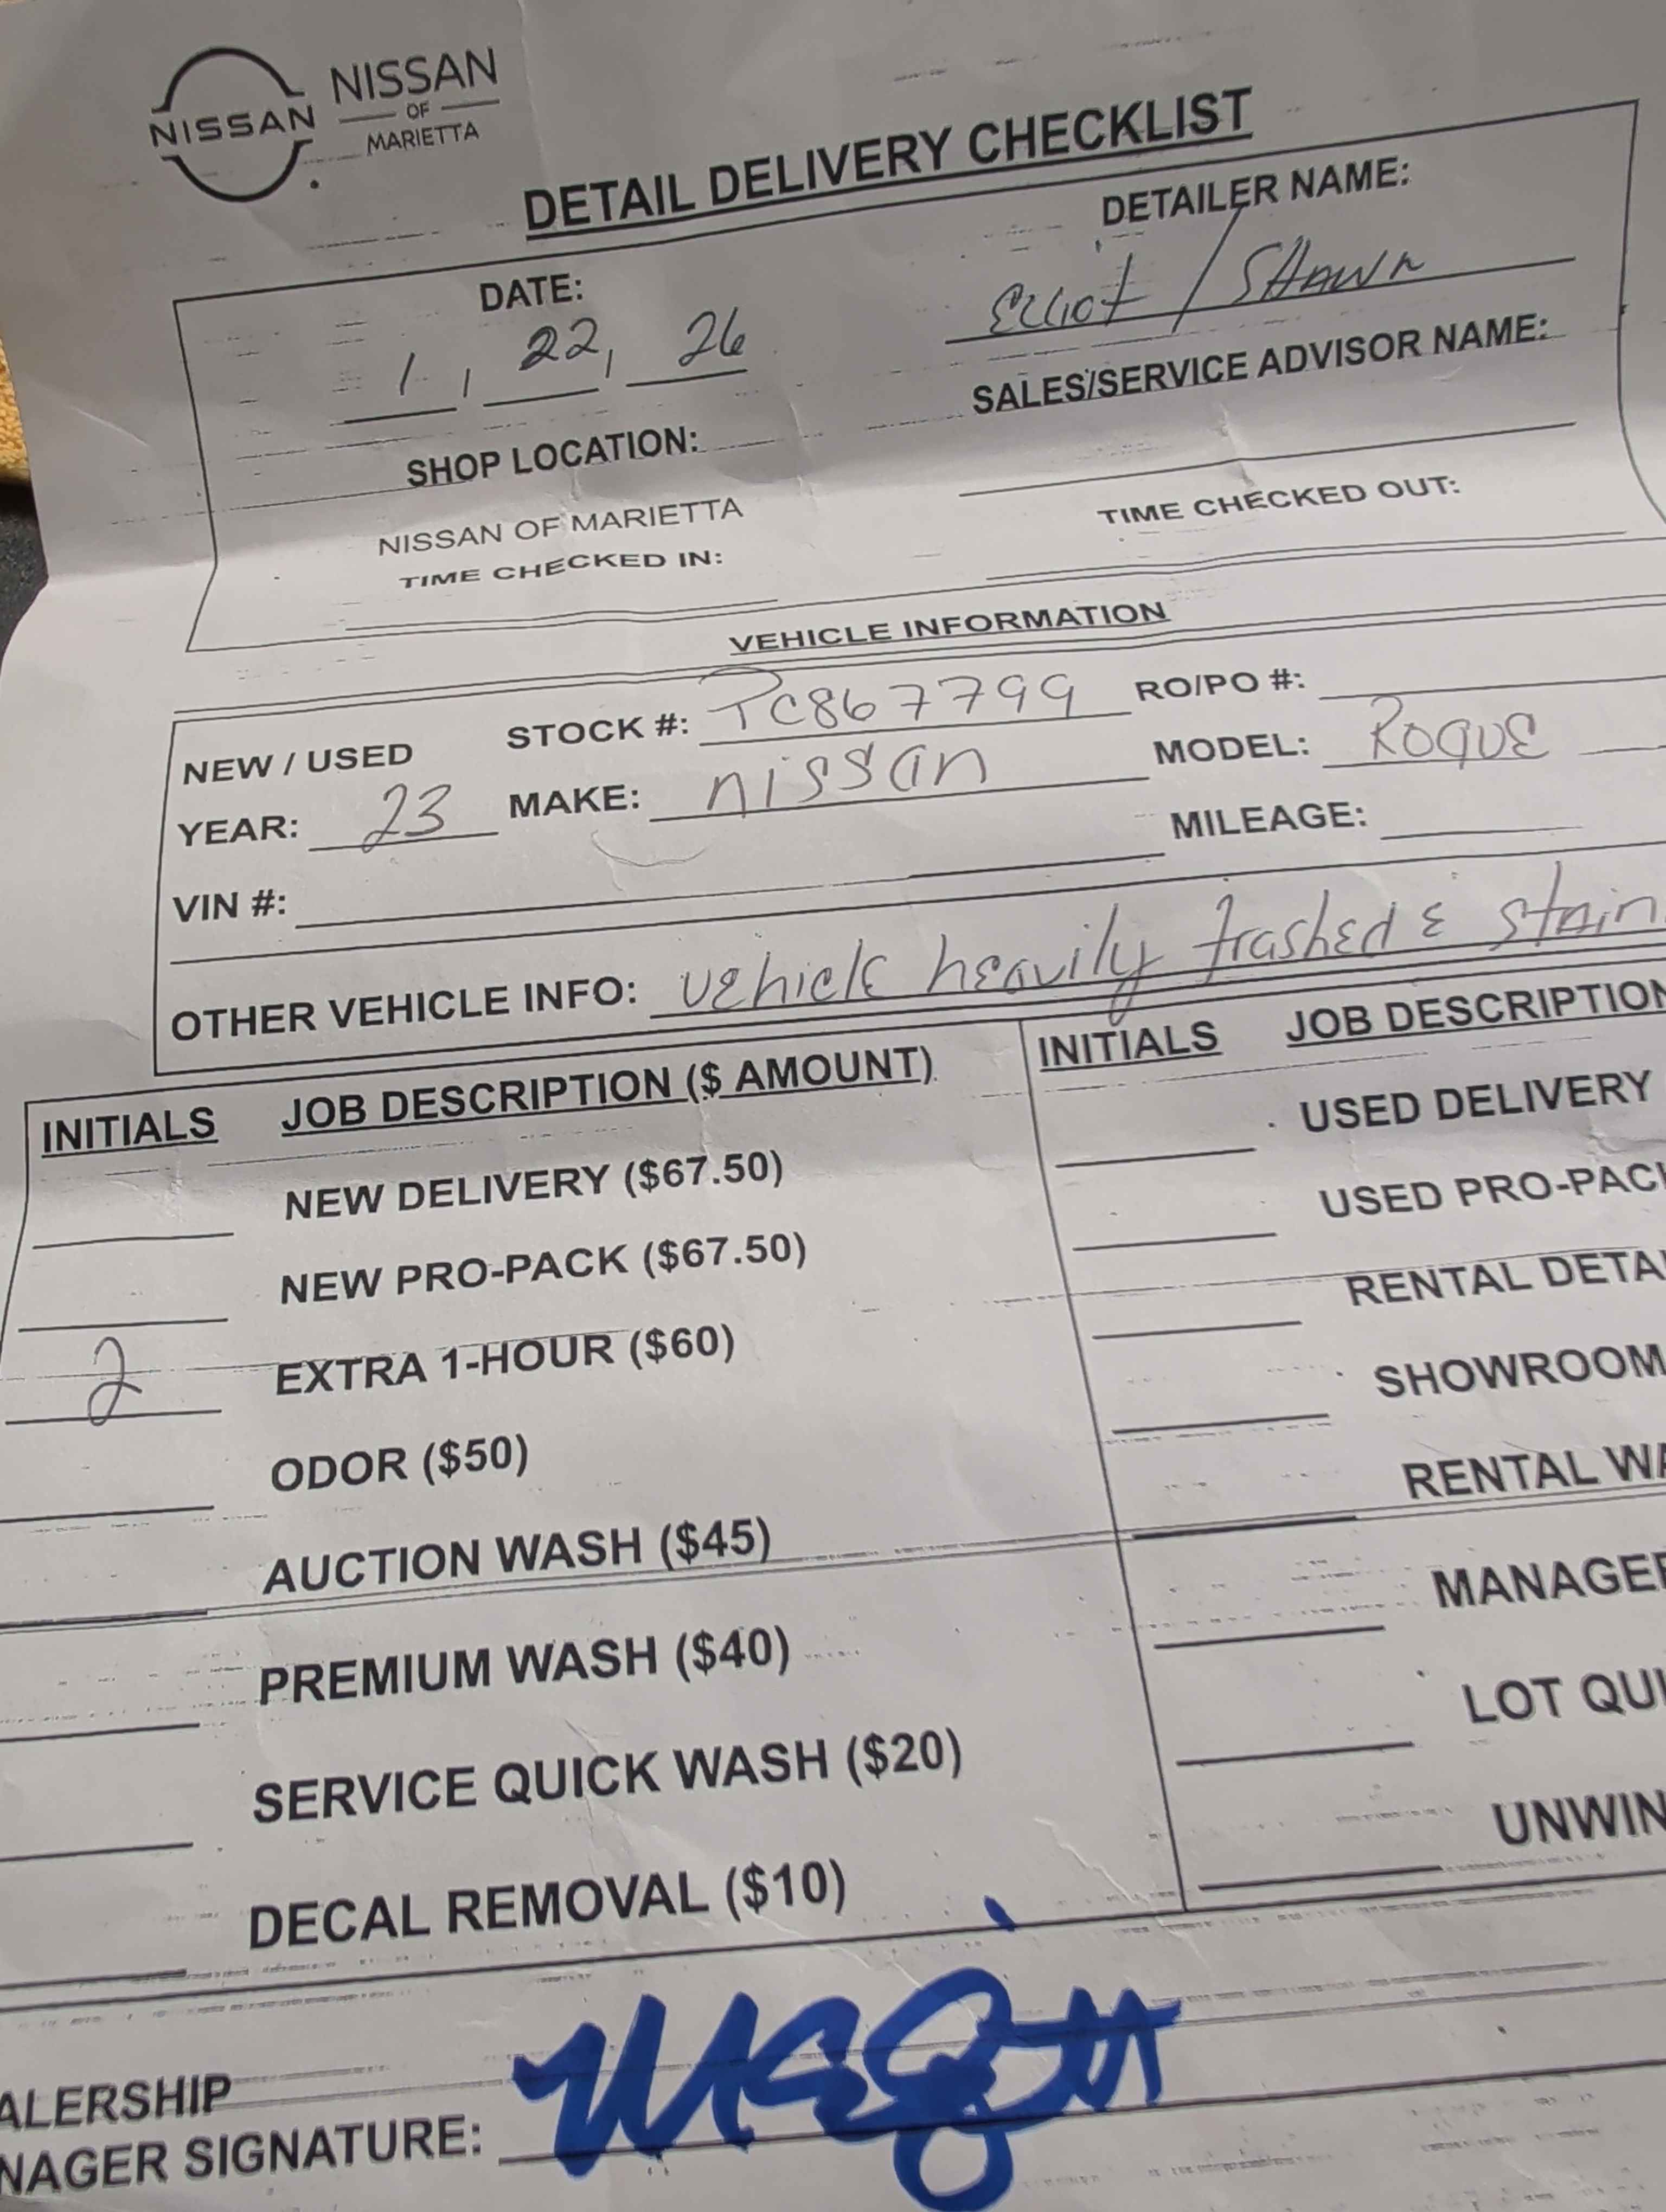 NISSAN
NISSAN
OF
MARIETTA
DETAIL DELIVERY CHECKLIST
DATE:
DETAILER NAME:
1, 22, 26
Elliot / Shawn
SHOP LOCATION:
SALES/SERVICE ADVISOR NAME:
NISSAN OF MARIETTA
TIME CHECKED IN:
TIME CHECKED OUT:
VEHICLE INFORMATION
NEW / USED STOCK #: PC867799 RO/PO #:
YEAR: 23 MAKE: nissan MODEL: ROGUE
VIN #: MILEAGE:
OTHER VEHICLE INFO: vehicle heavily trashed & stain
INITIALS JOB DESCRIPTION ($ AMOUNT)
INITIALS JOB DESCRIPTION
NEW DELIVERY ($67.50)
USED DELIVERY
NEW PRO-PACK ($67.50)
USED PRO-PACK
2 EXTRA 1-HOUR ($60)
RENTAL DETAI
ODOR ($50)
SHOWROOM
AUCTION WASH ($45)
RENTAL WA
PREMIUM WASH ($40)
MANAGER
SERVICE QUICK WASH ($20)
LOT QUI
DECAL REMOVAL ($10)
UNWIN
ALERSHIP
NAGER SIGNATURE: